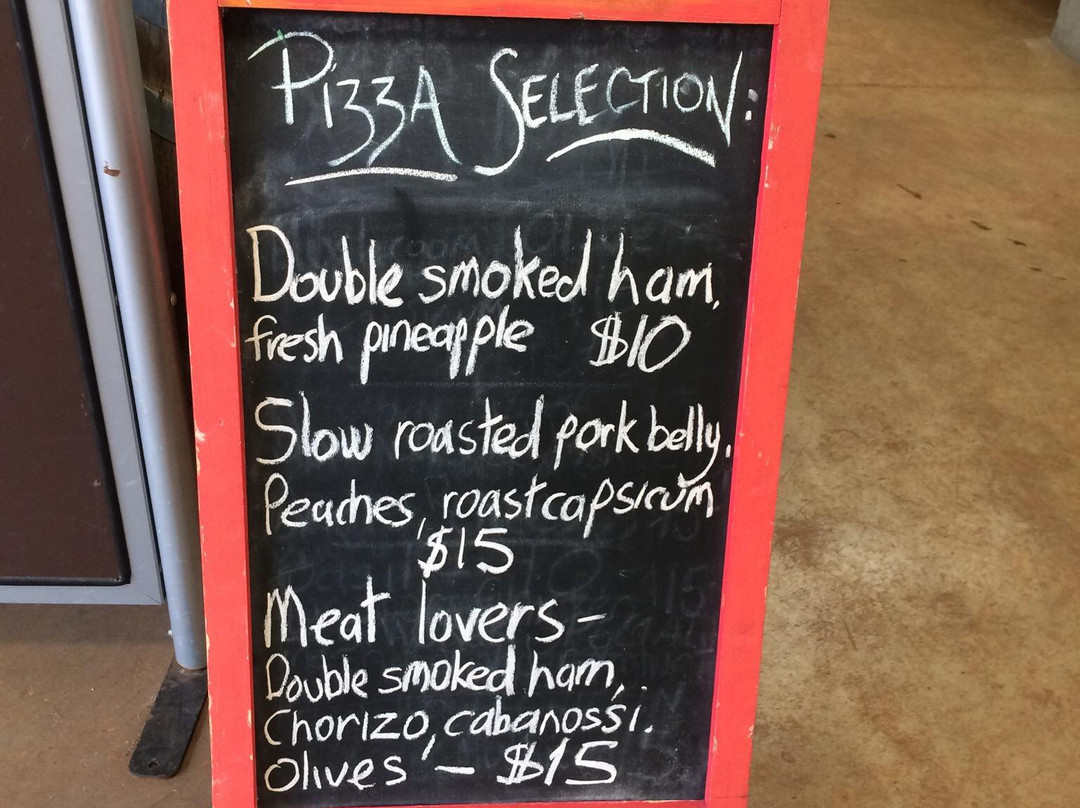 PIZZA SELECTION:
Double smoked ham,
fresh pineapple $10
Slow roasted pork belly.
Peaches, roast capsicum
$15
Meat lovers -
Double smoked ham,
Chorizo, cabanossi.
Olives - $15